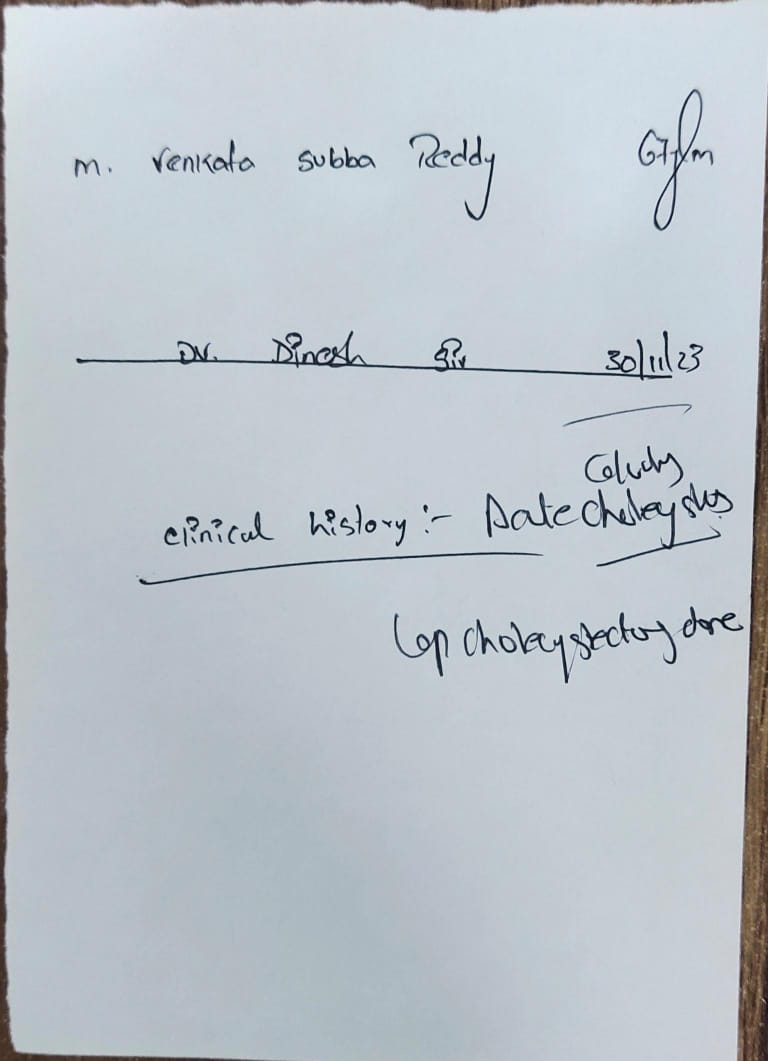 m. Venkata Subba Reddy 67y/m
Dr. Dinesh Sir 30/11/23
clinical history :-
Lap cholecystectomy done